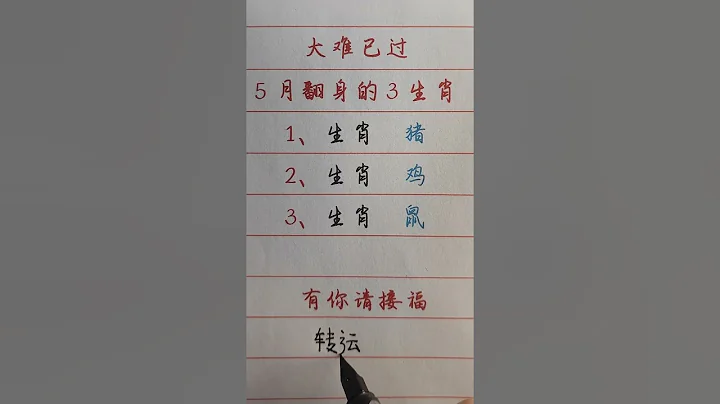 大难已过
5月翻身的3生肖
1、生肖 猪
2、生肖 鸡
3、生肖 鼠
有你请接福
转运